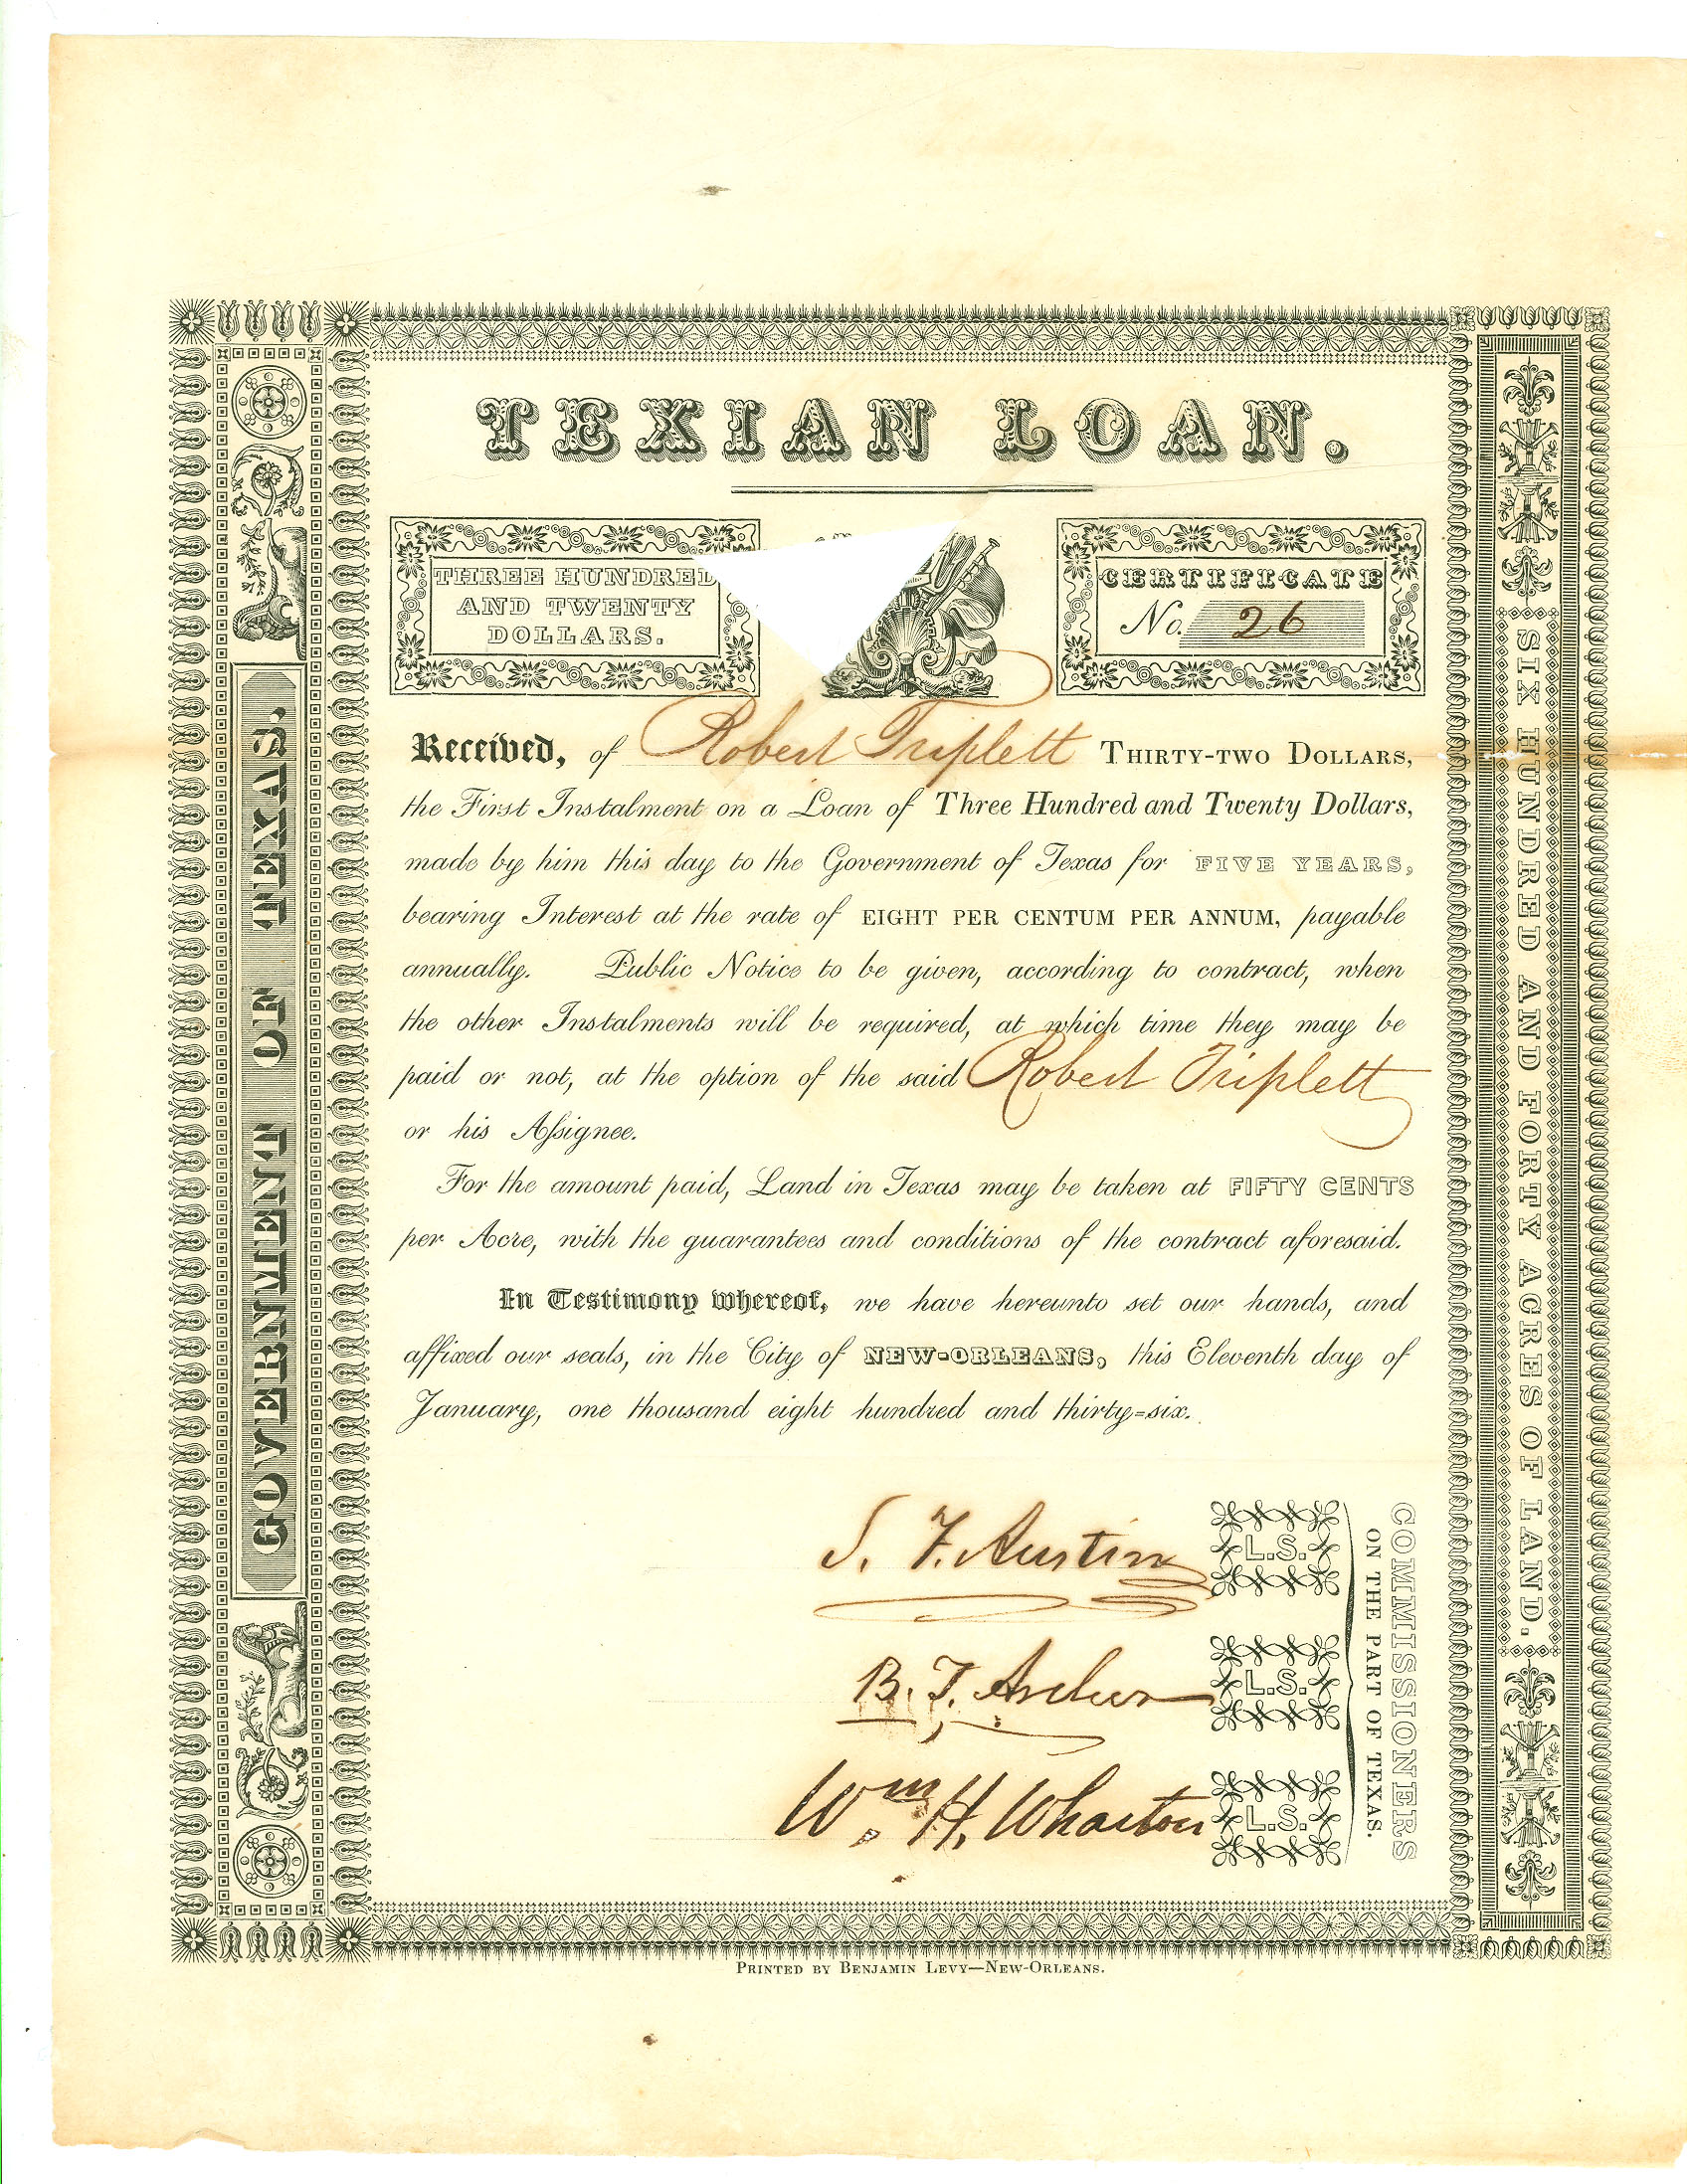 TEXIAN LOAN.
THREE HUNDRED
AND TWENTY
DOLLARS.
CERTIFICATE
No. 26
Received, of Robert Triplett THIRTY-TWO DOLLARS,
the First Instalment on a Loan of Three Hundred and Twenty Dollars,
made by him this day to the Government of Texas for FIVE YEARS,
bearing Interest at the rate of EIGHT PER CENTUM PER ANNUM, payable
annually. Public Notice to be given, according to contract, when
the other Instalments will be required, at which time they may be
paid or not, at the option of the said Robert Triplett
or his Aſsignee.
For the amount paid, Land in Texas may be taken at FIFTY CENTS
per Acre, with the guarantees and conditions of the contract aforesaid.
In Testimony whereof, we have hereunto set our hands, and
affixed our seals, in the City of NEW-ORLEANS, this Eleventh day of
January, one thousand eight hundred and thirty=six.
S. F. Austin L.S.
B. T. Archer L.S.
Wm H. Wharton L.S.
COMMISSIONERS
ON THE PART OF TEXAS.
GOVERNMENT OF TEXAS.
SIX HUNDRED AND FORTY ACRES OF LAND.
PRINTED BY BENJAMIN LEVY—NEW-ORLEANS.